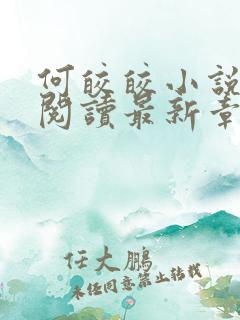 何皎皎小說
閱讀最新章
任大鵬
未經同意禁止轉載